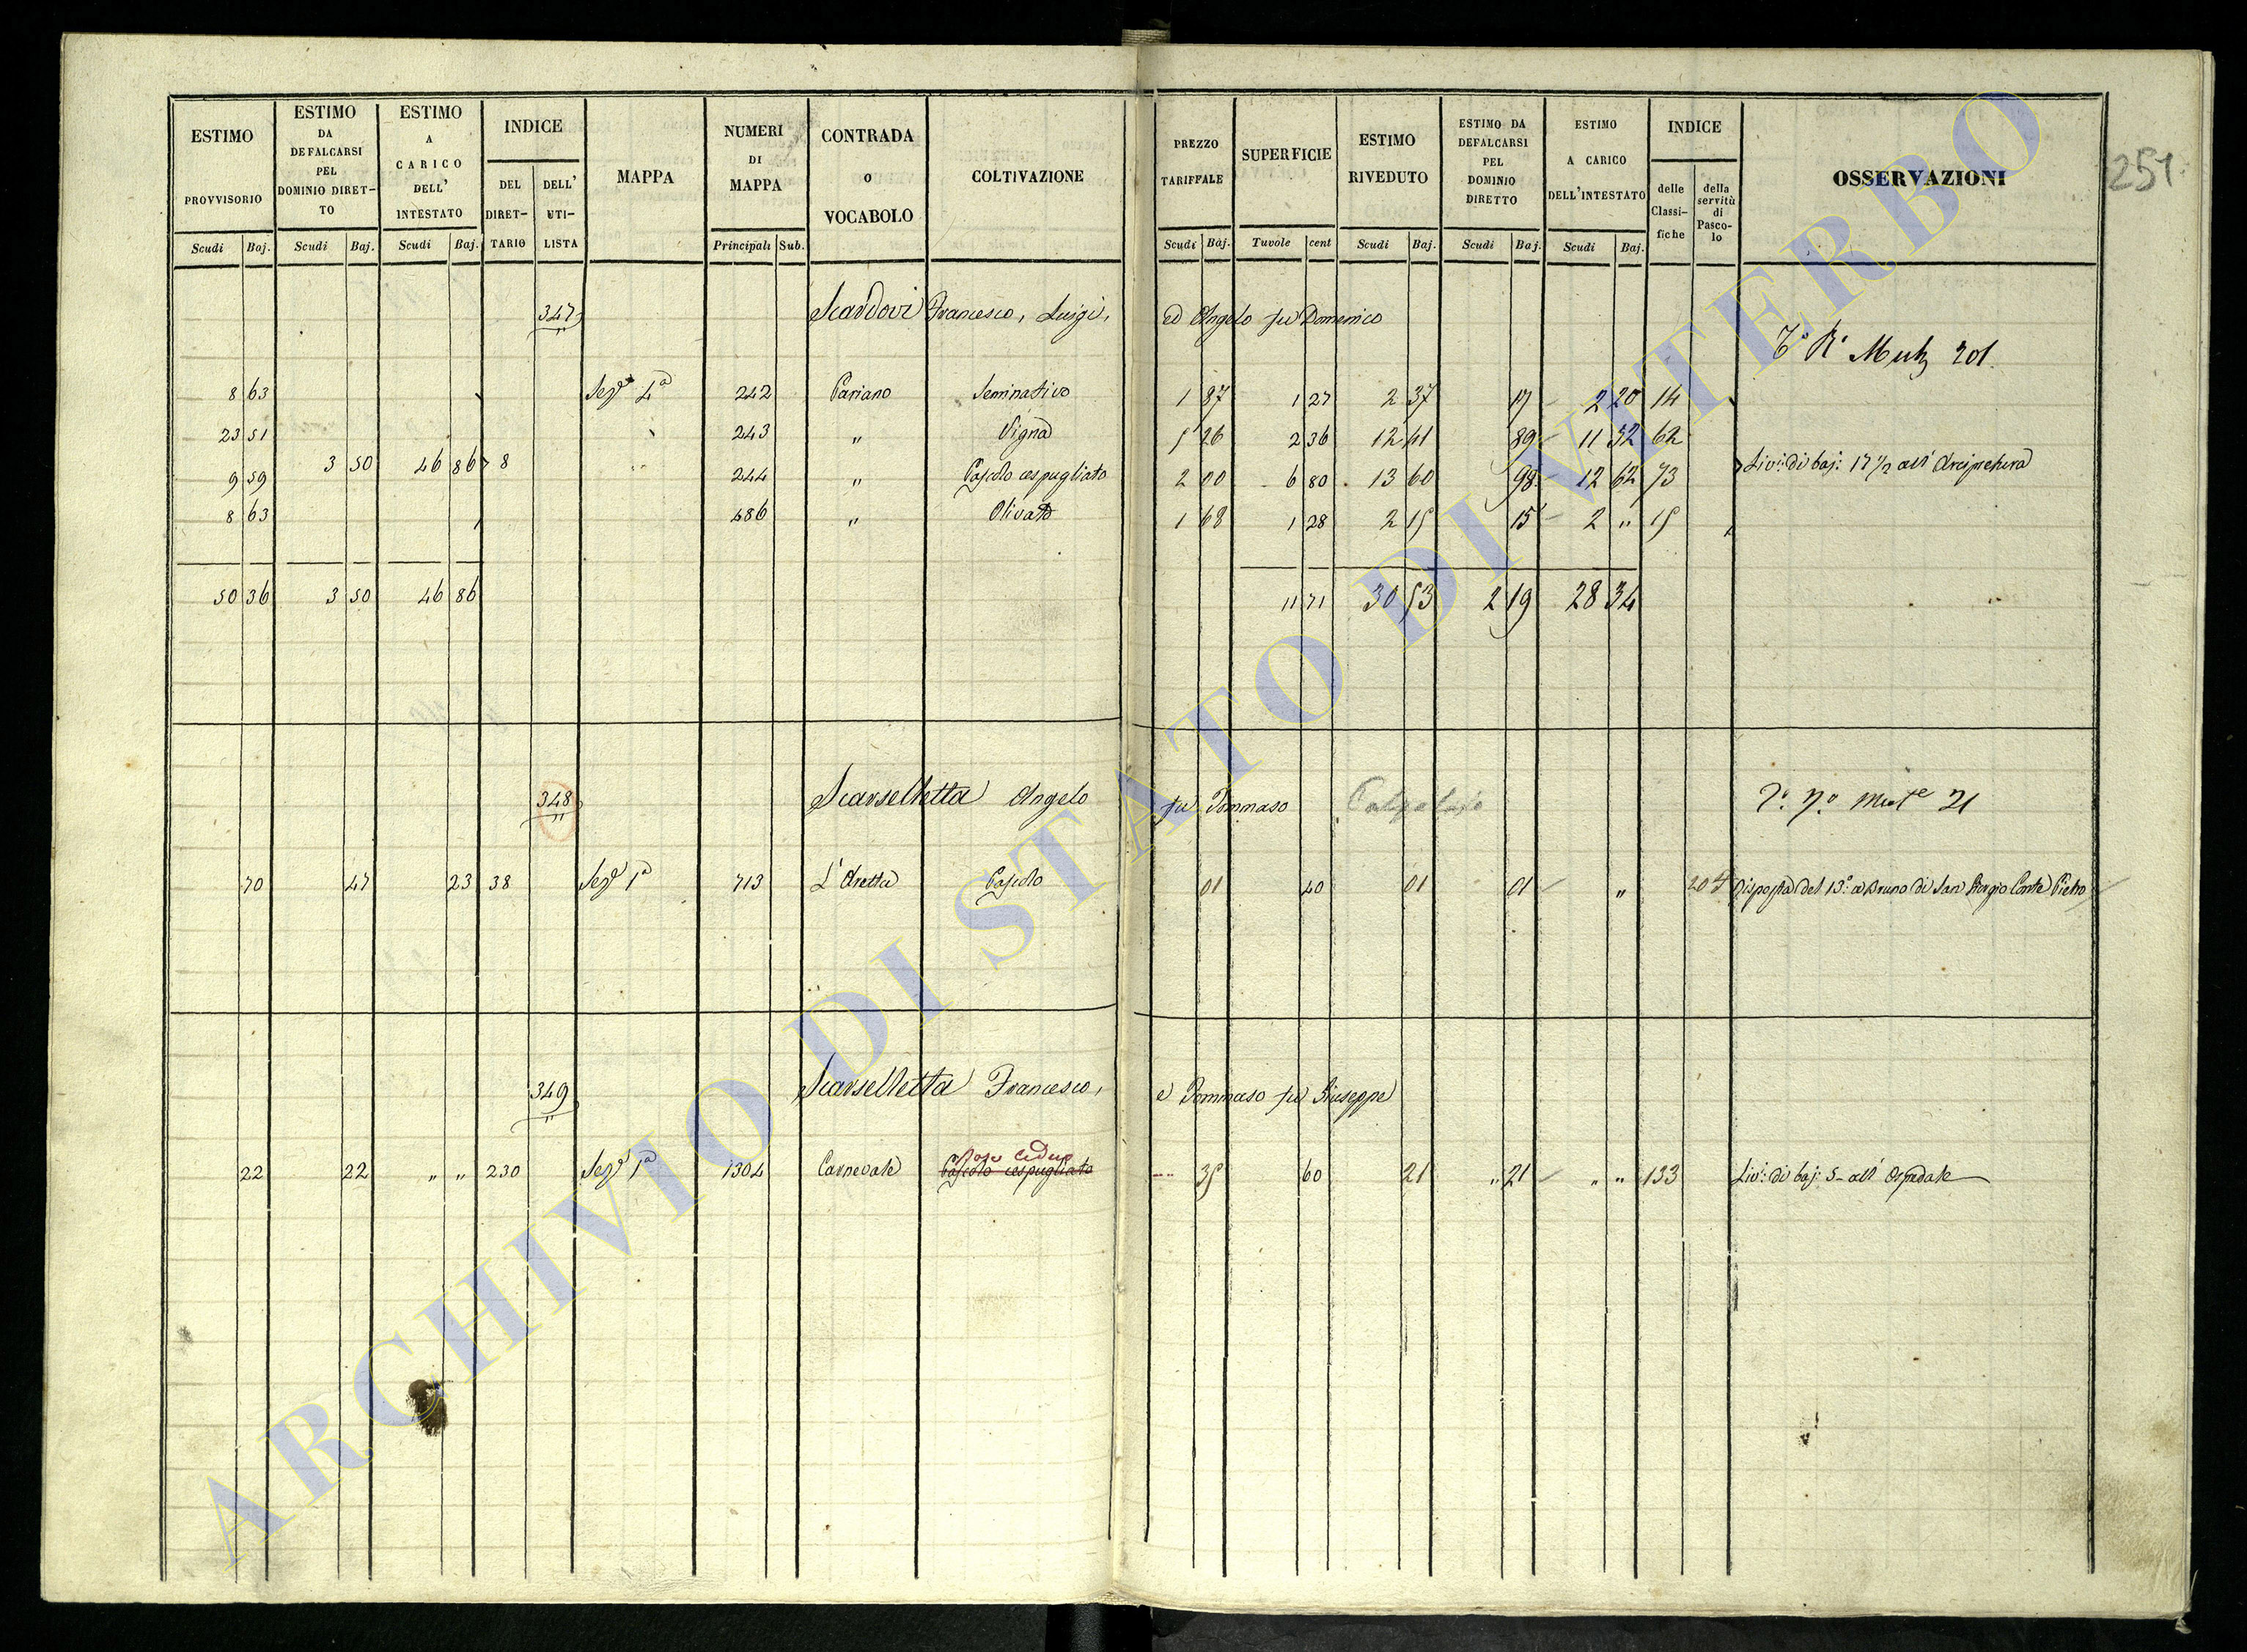 251
ESTIMO PROVVISORIO
ESTIMO DA DEFALCARSI PEL DOMINIO DIRETTO
ESTIMO A CARICO DELL' INTESTATO
INDICE
DEL DIRETTARIO
DELL' UTILISTA
MAPPA
NUMERI DI MAPPA
CONTRADA O VOCABOLO
COLTIVAZIONE
PREZZO TARIFFALE
SUPERFICIE
ESTIMO RIVEDUTO
ESTIMO DA DEFALCARSI PEL DOMINIO DIRETTO
ESTIMO A CARICO DELL'INTESTATO
INDICE
delle Classifiche
della servitù di Pascolo
OSSERVAZIONI
Scudi Baj. Scudi Baj. Scudi Baj. Principali Sub. Scudi Baj. Tavole cent Scudi Baj. Scudi Baj. Scudi Baj.
347 Scardovi Francesco, Luigi, ed Angelo fu Domenico
201
8 63 Sez.e 4a 242 Pariano Seminativo 1 87 1 27 2 37 17 2 20 14
23 51 243 " Vigna 5 26 2 36 12 41 89 11 52 62
3 50 46 86 8 Liv.: di baj: 17 1/2 all' Arcipretura
9 59 244 " Pascolo cespugliato 2 00 6 80 13 60 98 12 62 73
8 63 486 " Olivato 1 68 1 28 2 15 15 2 " 15
50 36 3 50 46 86 11 71 30 53 2 19 28 34
348 Scarselletta Angelo fu Tommaso
21
70 47 23 38 Sez.e 1a 713 L'Aretta Pascolo 01 40 01 01 " 204 Risposta del 13.o a Bruno di San Giorgio Conte Pietro
349 Scarselletta Francesco, e Tommaso fu Giuseppe
Bosco Ceduo
22 22 " " 230 Sez.e 1a 1304 Carnevale Pascolo cespugliato 35 60 21 " 21 " " 133 Liv.: di baj: 5 - all' Ospedale
ARCHIVIO DI STATO DI VITERBO